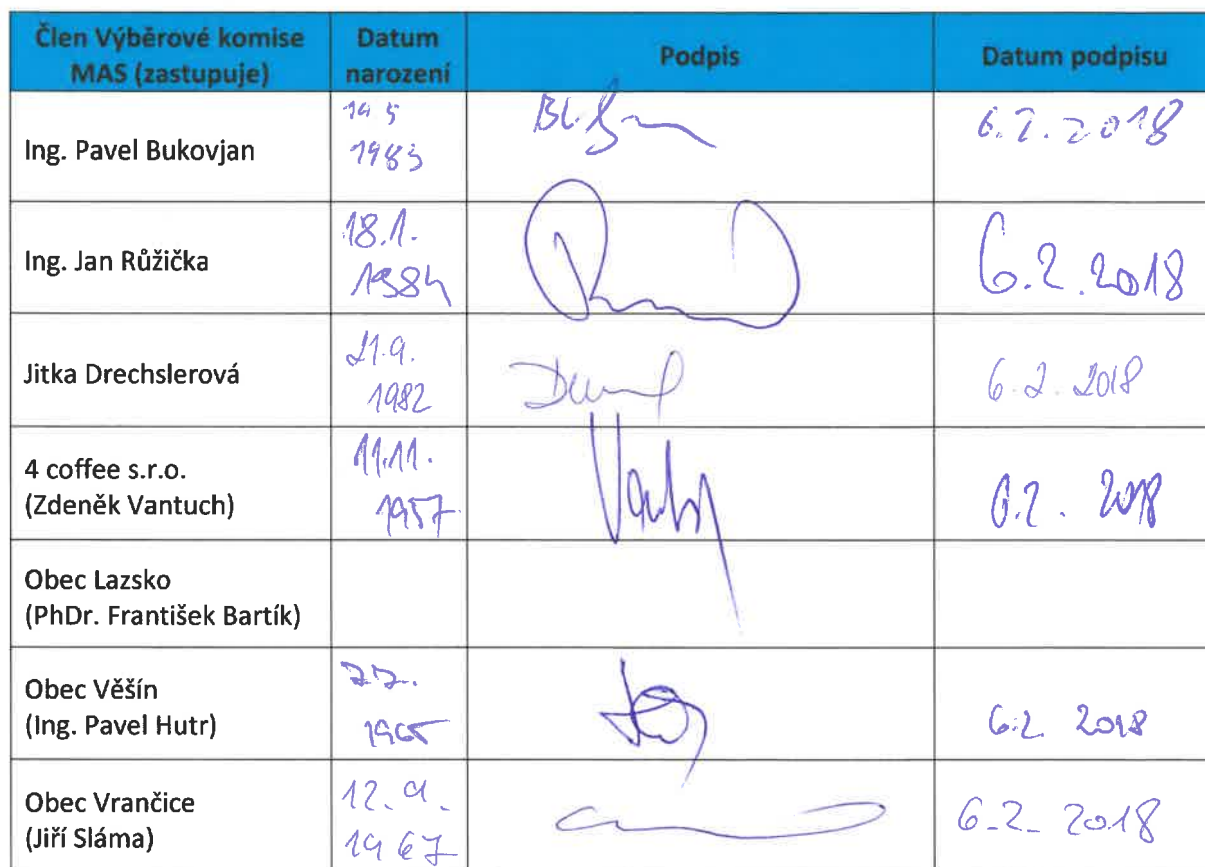 Člen Výběrové komise
MAS (zastupuje)
Datum
narození
Podpis
Datum podpisu
Ing. Pavel Bukovjan
19 5
1983
6.2.2018
Ing. Jan Růžička
18.1.
1984
6.2.2018
Jitka Drechslerová
21.9.
1982
6.2.2018
4 coffee s.r.o.
(Zdeněk Vantuch)
11.11.
1957
6.2. 2018
Obec Lazsko
(PhDr. František Bartík)
Obec Věšín
(Ing. Pavel Hutr)
7.7.
1965
6.2. 2018
Obec Vrančice
(Jiří Sláma)
12.9.
1967
6.2. 2018